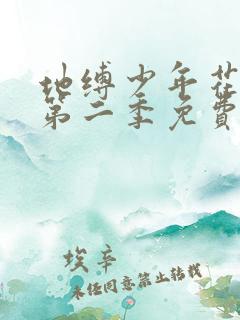 地缚少年花
第二季免費
埃辛
未经同意禁止转载